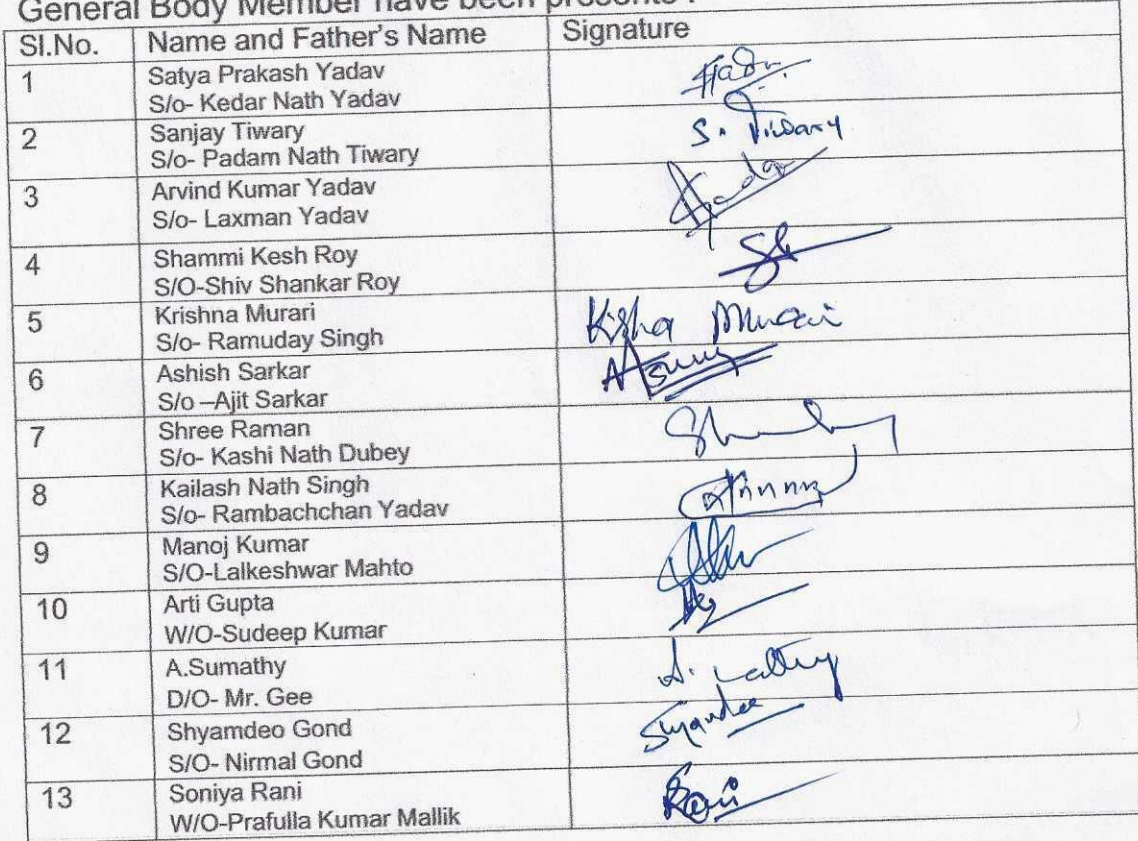 General Body Member have been presents :
Sl.No. Name and Father's Name Signature
1 Satya Prakash Yadav
S/o- Kedar Nath Yadav
2 Sanjay Tiwary S. Tiwary
S/o- Padam Nath Tiwary
3 Arvind Kumar Yadav
S/o- Laxman Yadav
4 Shammi Kesh Roy
S/O-Shiv Shankar Roy
5 Krishna Murari
S/o- Ramuday Singh
6 Ashish Sarkar
S/o –Ajit Sarkar
7 Shree Raman
S/o- Kashi Nath Dubey
8 Kailash Nath Singh
S/o- Rambachchan Yadav
9 Manoj Kumar
S/O-Lalkeshwar Mahto
10 Arti Gupta
W/O-Sudeep Kumar
11 A.Sumathy
D/O- Mr. Gee
12 Shyamdeo Gond
S/O- Nirmal Gond
13 Soniya Rani
W/O-Prafulla Kumar Mallik